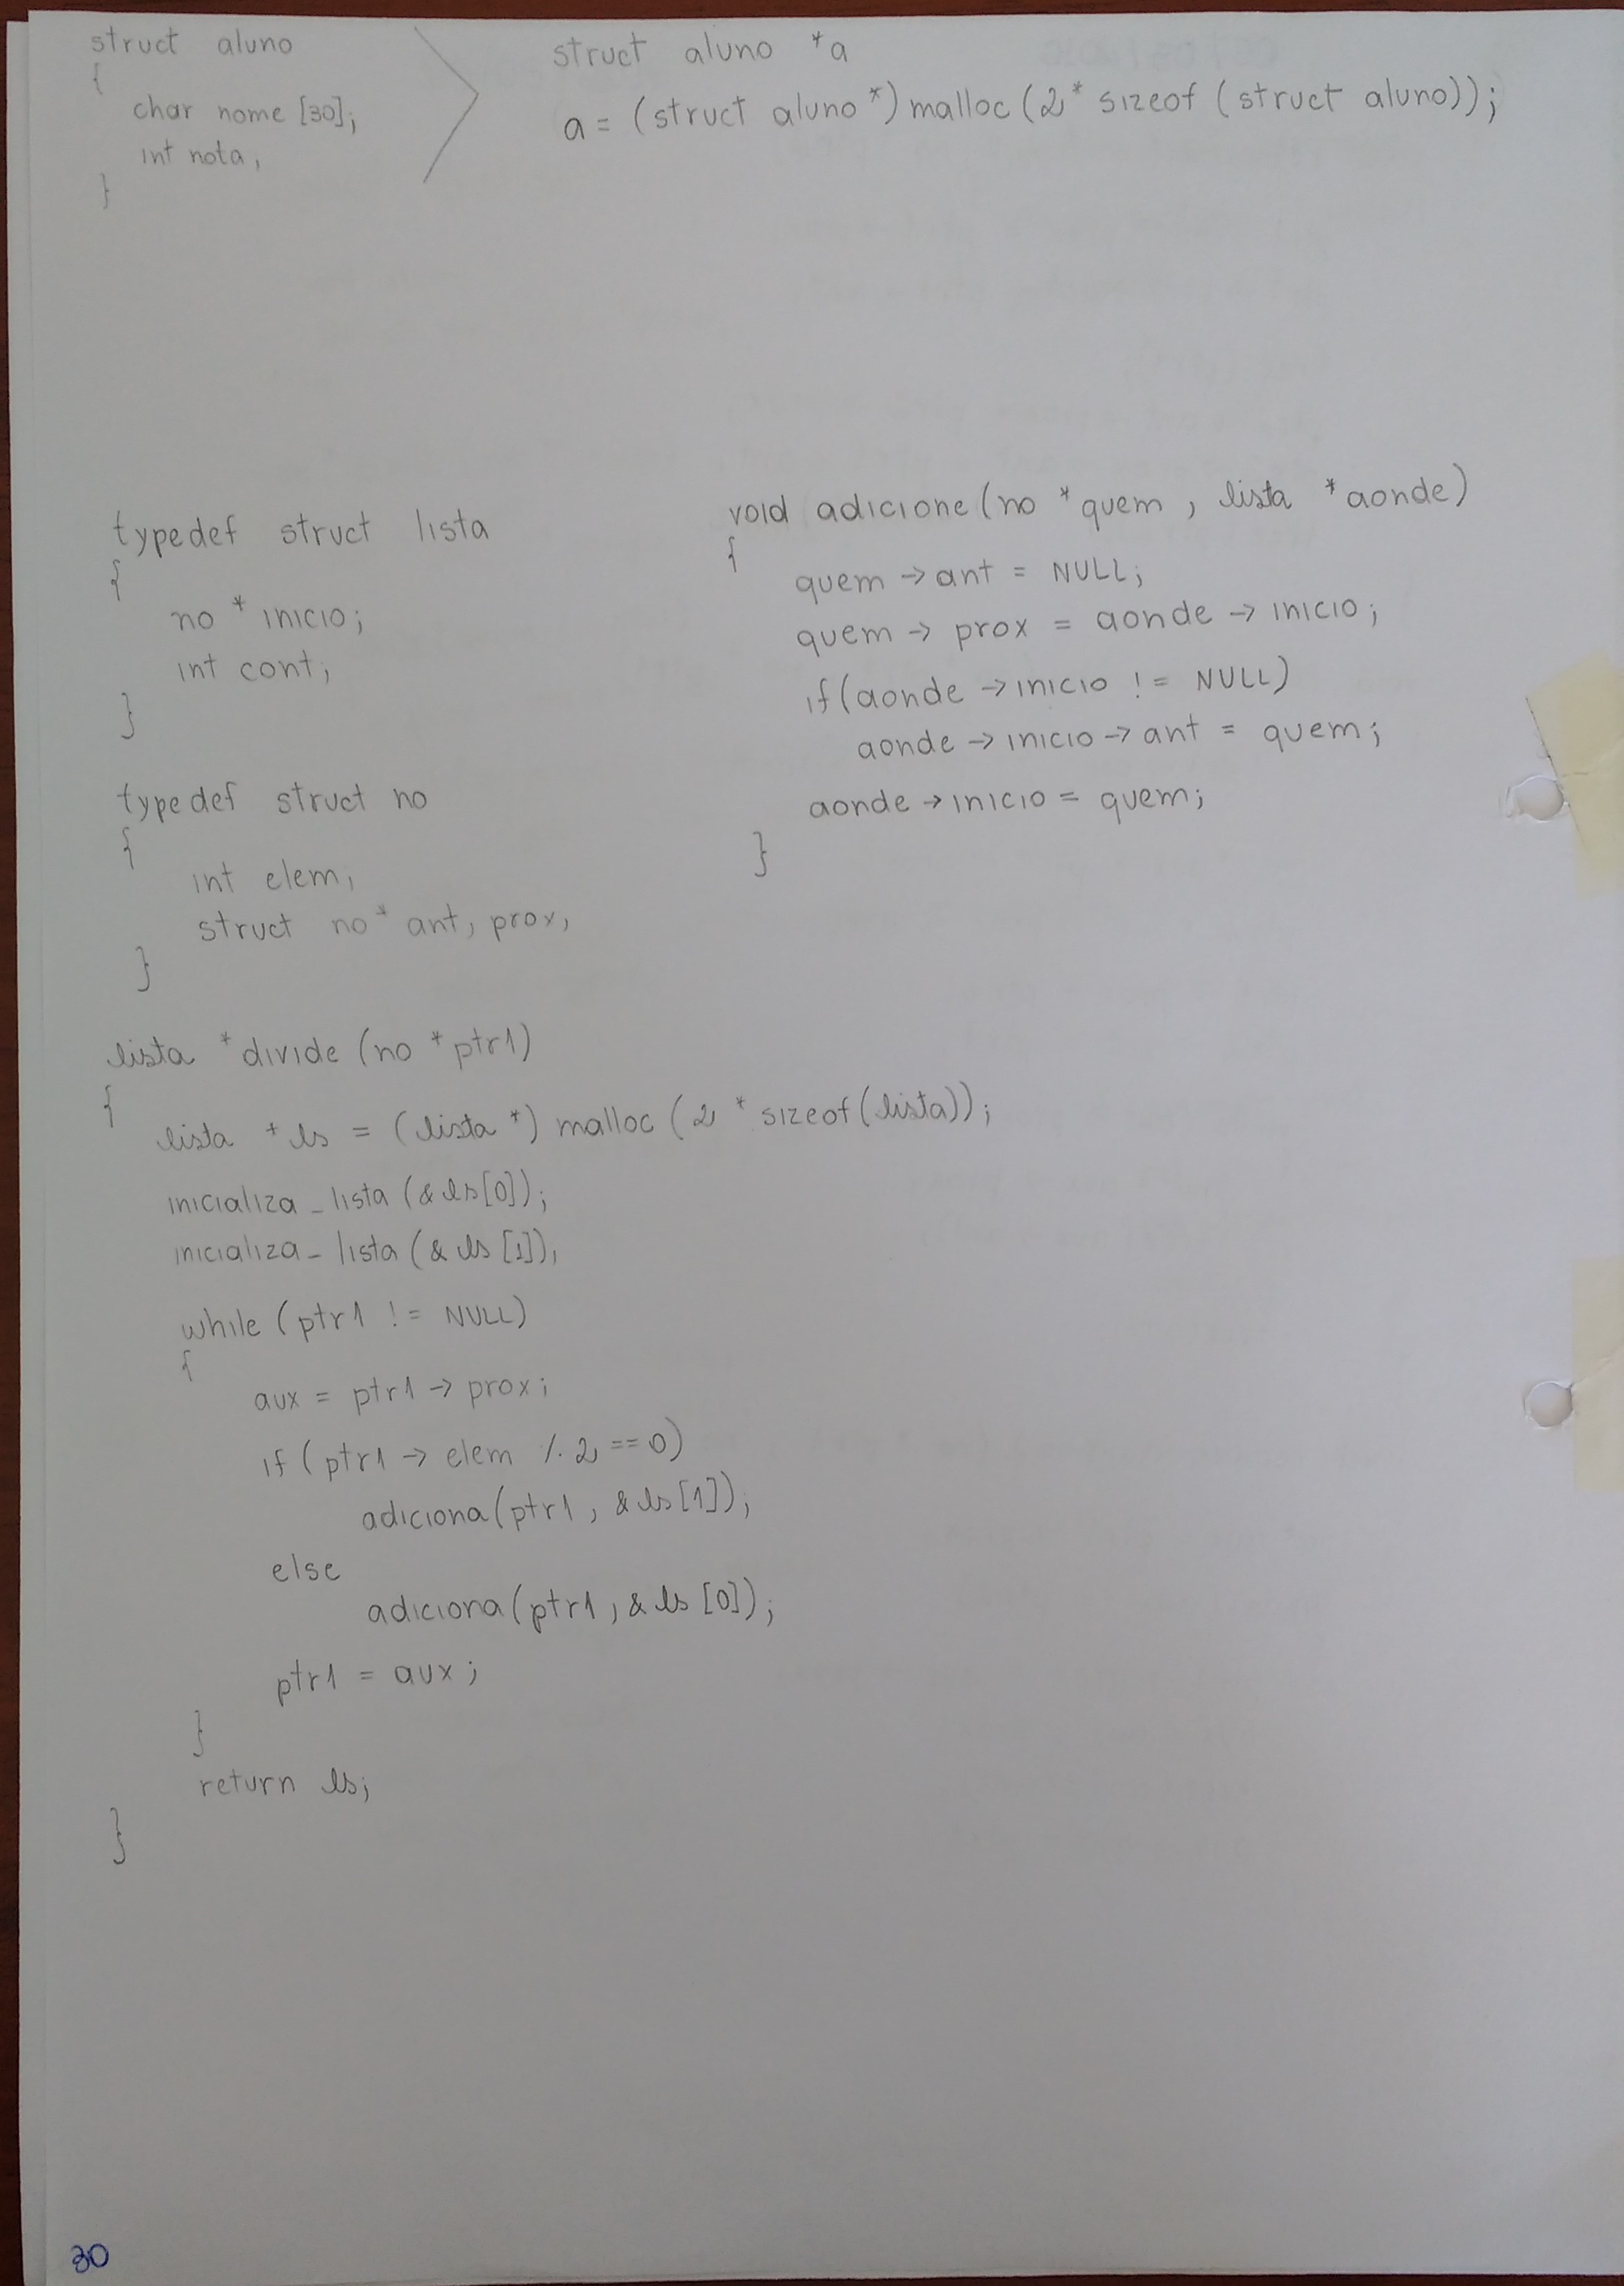 struct aluno
{
char nome [30];
int nota;
}
struct aluno *a
a = (struct aluno *) malloc (2 * sizeof (struct aluno));
typedef struct lista
{
no * inicio;
int cont;
}
typedef struct no
{
int elem;
struct no * ant, prox;
}
void adicione (no * quem , lista * aonde)
{
quem -> ant = NULL;
quem -> prox = aonde -> inicio;
if (aonde -> inicio != NULL)
aonde -> inicio -> ant = quem;
aonde -> inicio = quem;
}
lista * divide (no * ptr1)
{
lista * ls = (lista *) malloc (2 * sizeof (lista));
inicializa_lista (& ls [0]);
inicializa_lista (& ls [1]);
while (ptr1 != NULL)
{
aux = ptr1 -> prox;
if (ptr1 -> elem % 2 == 0)
adiciona (ptr1 , & ls [1]);
else
adiciona (ptr1 , & ls [0]);
ptr1 = aux ;
}
return ls;
}
30